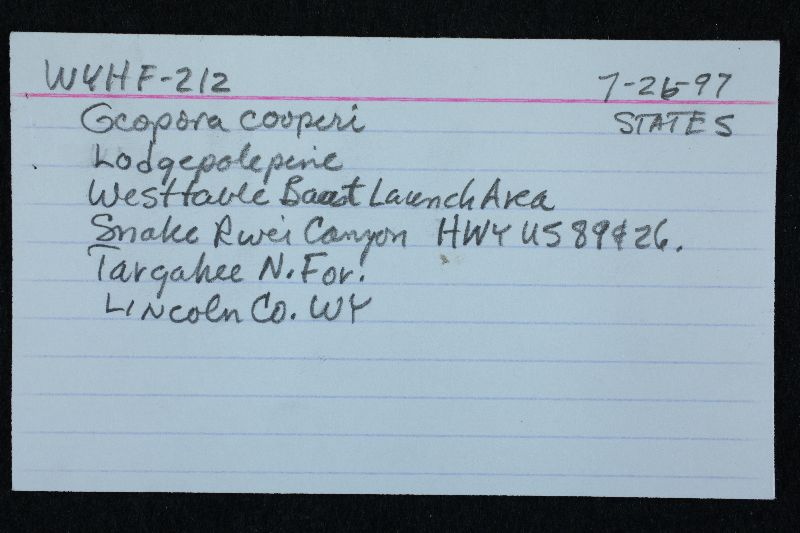 WYHF-212 7-26-97
Geopora cooperi STATES
Lodgepolepine
Westtable Boat Launch Area
Snake River Canyon HWY US 89 & 26.
Targahee N. For.
Lincoln Co. WY